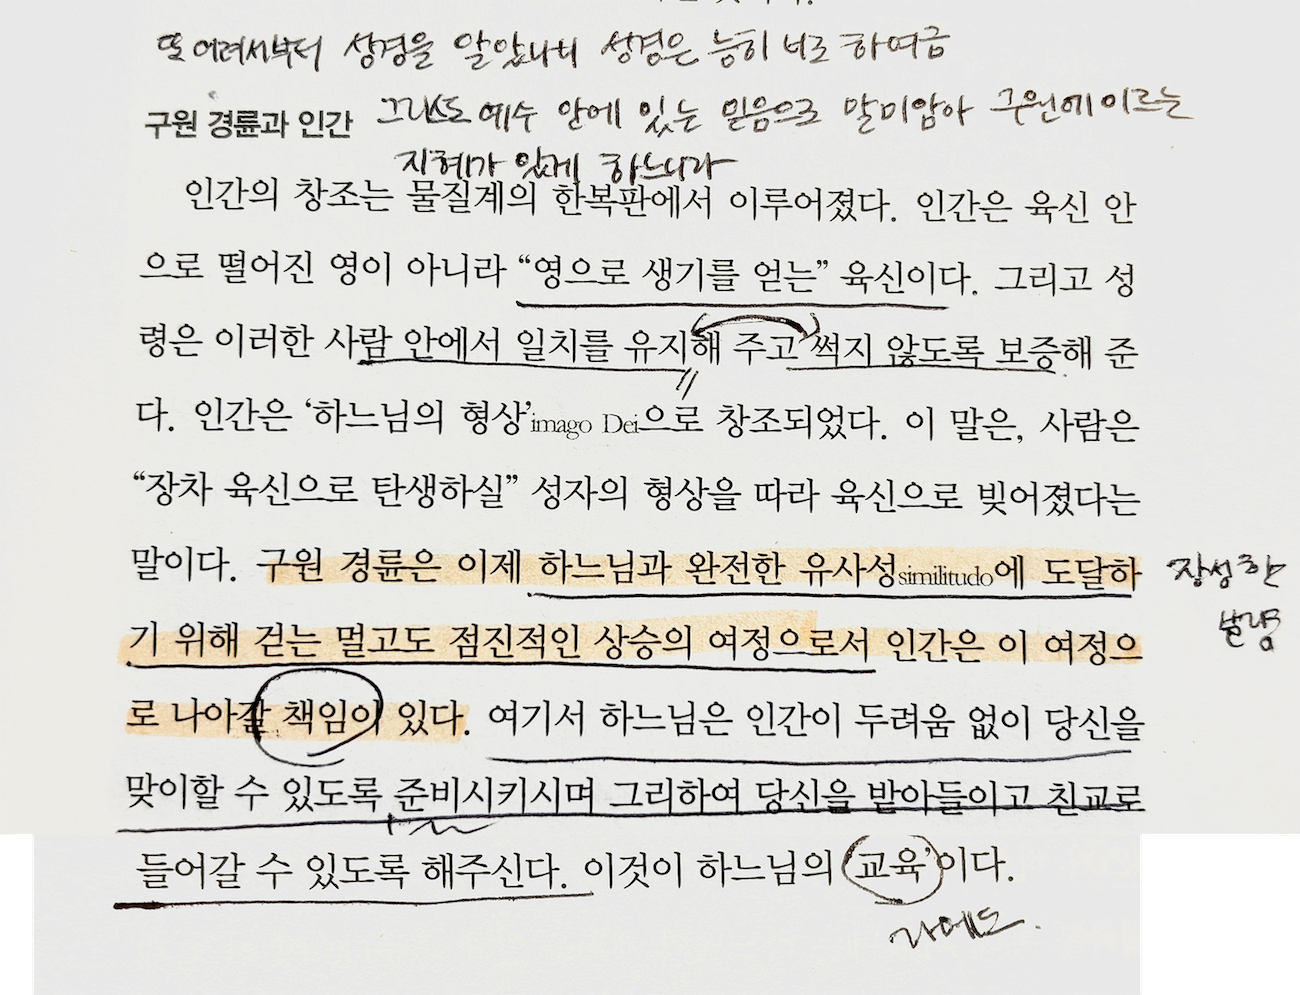 또 어려서부터 성경을 알았나니 성경은 능히 너로 하여금
구원 경륜과 인간
그리스도 예수 안에 있는 믿음으로 말미암아 구원에 이르는
지혜가 있게 하느니라
인간의 창조는 물질계의 한복판에서 이루어졌다. 인간은 육신 안
으로 떨어진 영이 아니라 “영으로 생기를 얻는” 육신이다. 그리고 성
령은 이러한 사람 안에서 일치를 유지해 주고 썩지 않도록 보증해 준
다. 인간은 ‘하느님의 형상’imago Dei으로 창조되었다. 이 말은, 사람은
“장차 육신으로 탄생하실” 성자의 형상을 따라 육신으로 빚어졌다는
말이다. 구원 경륜은 이제 하느님과 완전한 유사성similitudo에 도달하
장성한
분량
기 위해 걷는 멀고도 점진적인 상승의 여정으로서 인간은 이 여정으
로 나아갈 책임이 있다. 여기서 하느님은 인간이 두려움 없이 당신을
맞이할 수 있도록 준비시키시며 그리하여 당신을 받아들이고 친교로
들어갈 수 있도록 해주신다. 이것이 하느님의 ‘교육’이다.